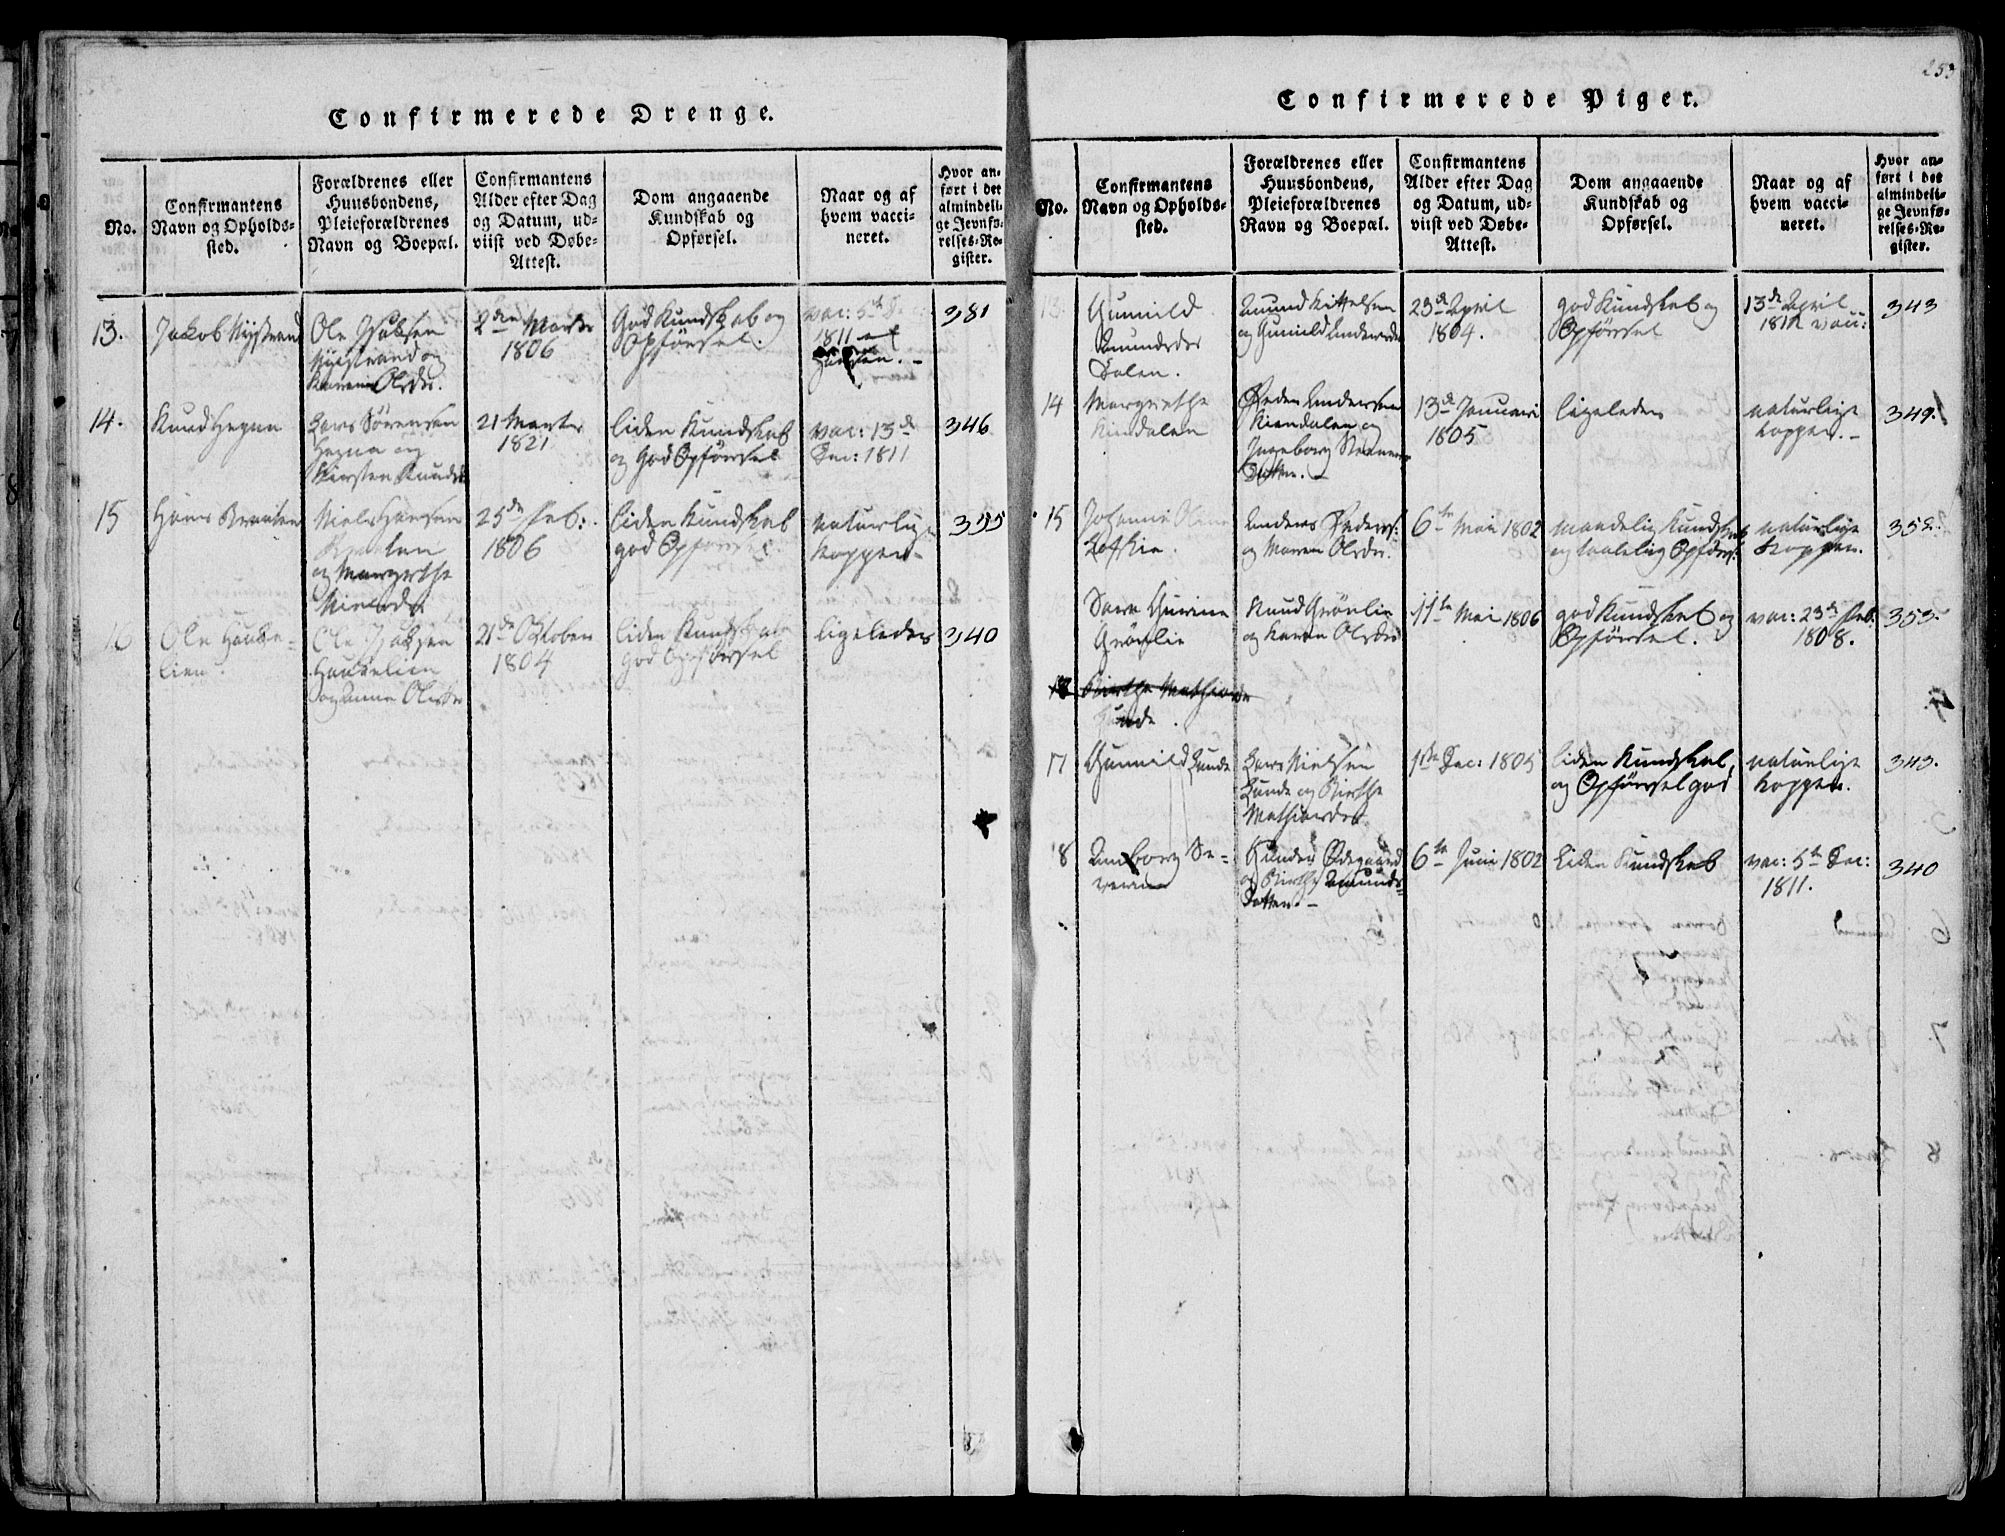 Confirmerede Drenge.
No.
Confirmantens
Navn og Opholds-
sted.
Forældrenes eller
Huusbondens,
Pleieforældrenes
Navn og Boepæl.
Confirmantens
Alder efter Dag
og Datum, ud-
viist ved Døbe-
Attest.
Dom angaaende
Kundskab og
Opførsel.
Naar og af
hvem vacci-
neret.
Hvor an-
ført i det
almindeli-
ge Jevnfø-
relses-Re-
gister.
13.
Jakob Nystrand
Ole Jsaksen
Nystrand og
Karen Olsdr.
2den Marts
1806
God Kundskab og
Opførsel.
vac: 5te D
1811 af
381
14.
Knud Hegna
Lars Sörensen
Hegna og
Kirsten Knudsd
21 Marts
1821
liden Kundskab
og God Opførsel
vac: 13de
Dec: 1811
346
15
Hans Braaten
Niels Hansen
Braaten
og Margrethe
Nielsdr
25de Feb:
1806
liden Kundskab
god Opførsel
naturlige
kopper
355
16
Ole Haube-
lien.
Ole Jsaksen
Haubelien
og Anne Olsdr
21de Oktober
1804
liden Kundskab
God Opførsel
ligeledes
340
253
Confirmerede Piger.
No.
Confirmantens
Navn og Opholds-
sted.
Forældrenes eller
Huusbondens,
Pleieforældrenes
Navn og Boepæl.
Confirmantens
Alder efter Dag
og Datum, ud-
viist ved Døbe-
Attest.
Dom angaaende
Kundskab og
Opførsel.
Naar og af
hvem vacci-
neret.
Hvor an-
ført i det
almindeli-
ge Jevnfø-
relses-Re-
gister.
13.
Gunild
Amundsdr
Dalen.
Amund Kittelsen
og Gunild Andersdr
23de April
1804.
god Kundskab og
Opførsel
13de April
1812 vacc:
343
14
Margrethe
Kiendalen
Peder Andersen
Kiendalen og
Ingeborg
Datter.
13de Januari
1805
ligeledes
naturlige
kopper.
349.
15
Johanne Oline
Anders Peders:
og Maren Olsdr.
6te Mai 1802
maadelig Kundskab
og taalelig Opførsel
naturlige
kopper.
352.
Sara
Grönlie
Knud Grönlie
og Karen Olsdr
11te Mai 1806
god Kundskab og
Opførsel.
vac: 23de Feb.
1808.
353.
Birthe Mathiasdr
Lunde.
17
Gunild Lunde
Lars Nielsen
Lunde og Birthe
Mathiasdr.
1ste Dec: 1805
liden Kundskab,
og Opførsel god
naturlige
kopper.
343.
8
Anborg Se-
Gunder Ødegaard
og Birthe Amunds-
Datter.
6te Juni 1802
Liden Kundskab
vac: 5te Dec:
1811.
340